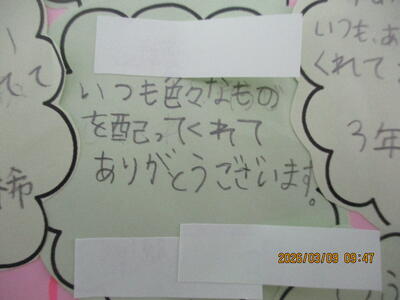 いつも色々なもの
を配ってくれて
ありがとうございます。
いつも、あ
くれて
3年
て
希
2026/03/09 09:47